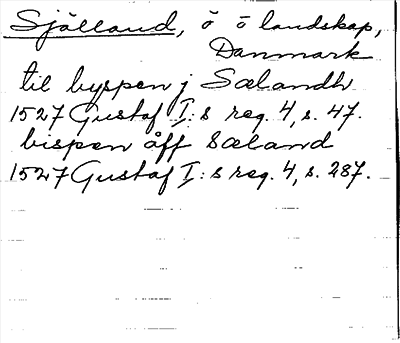 Själland, ö ō landskap,
Danmark
til byspen j Sælandh
1527 Gustaf I:s reg. 4, s. 47.
bispen åff Sæland
1527 Gustaf I:s reg. 4, s. 287.